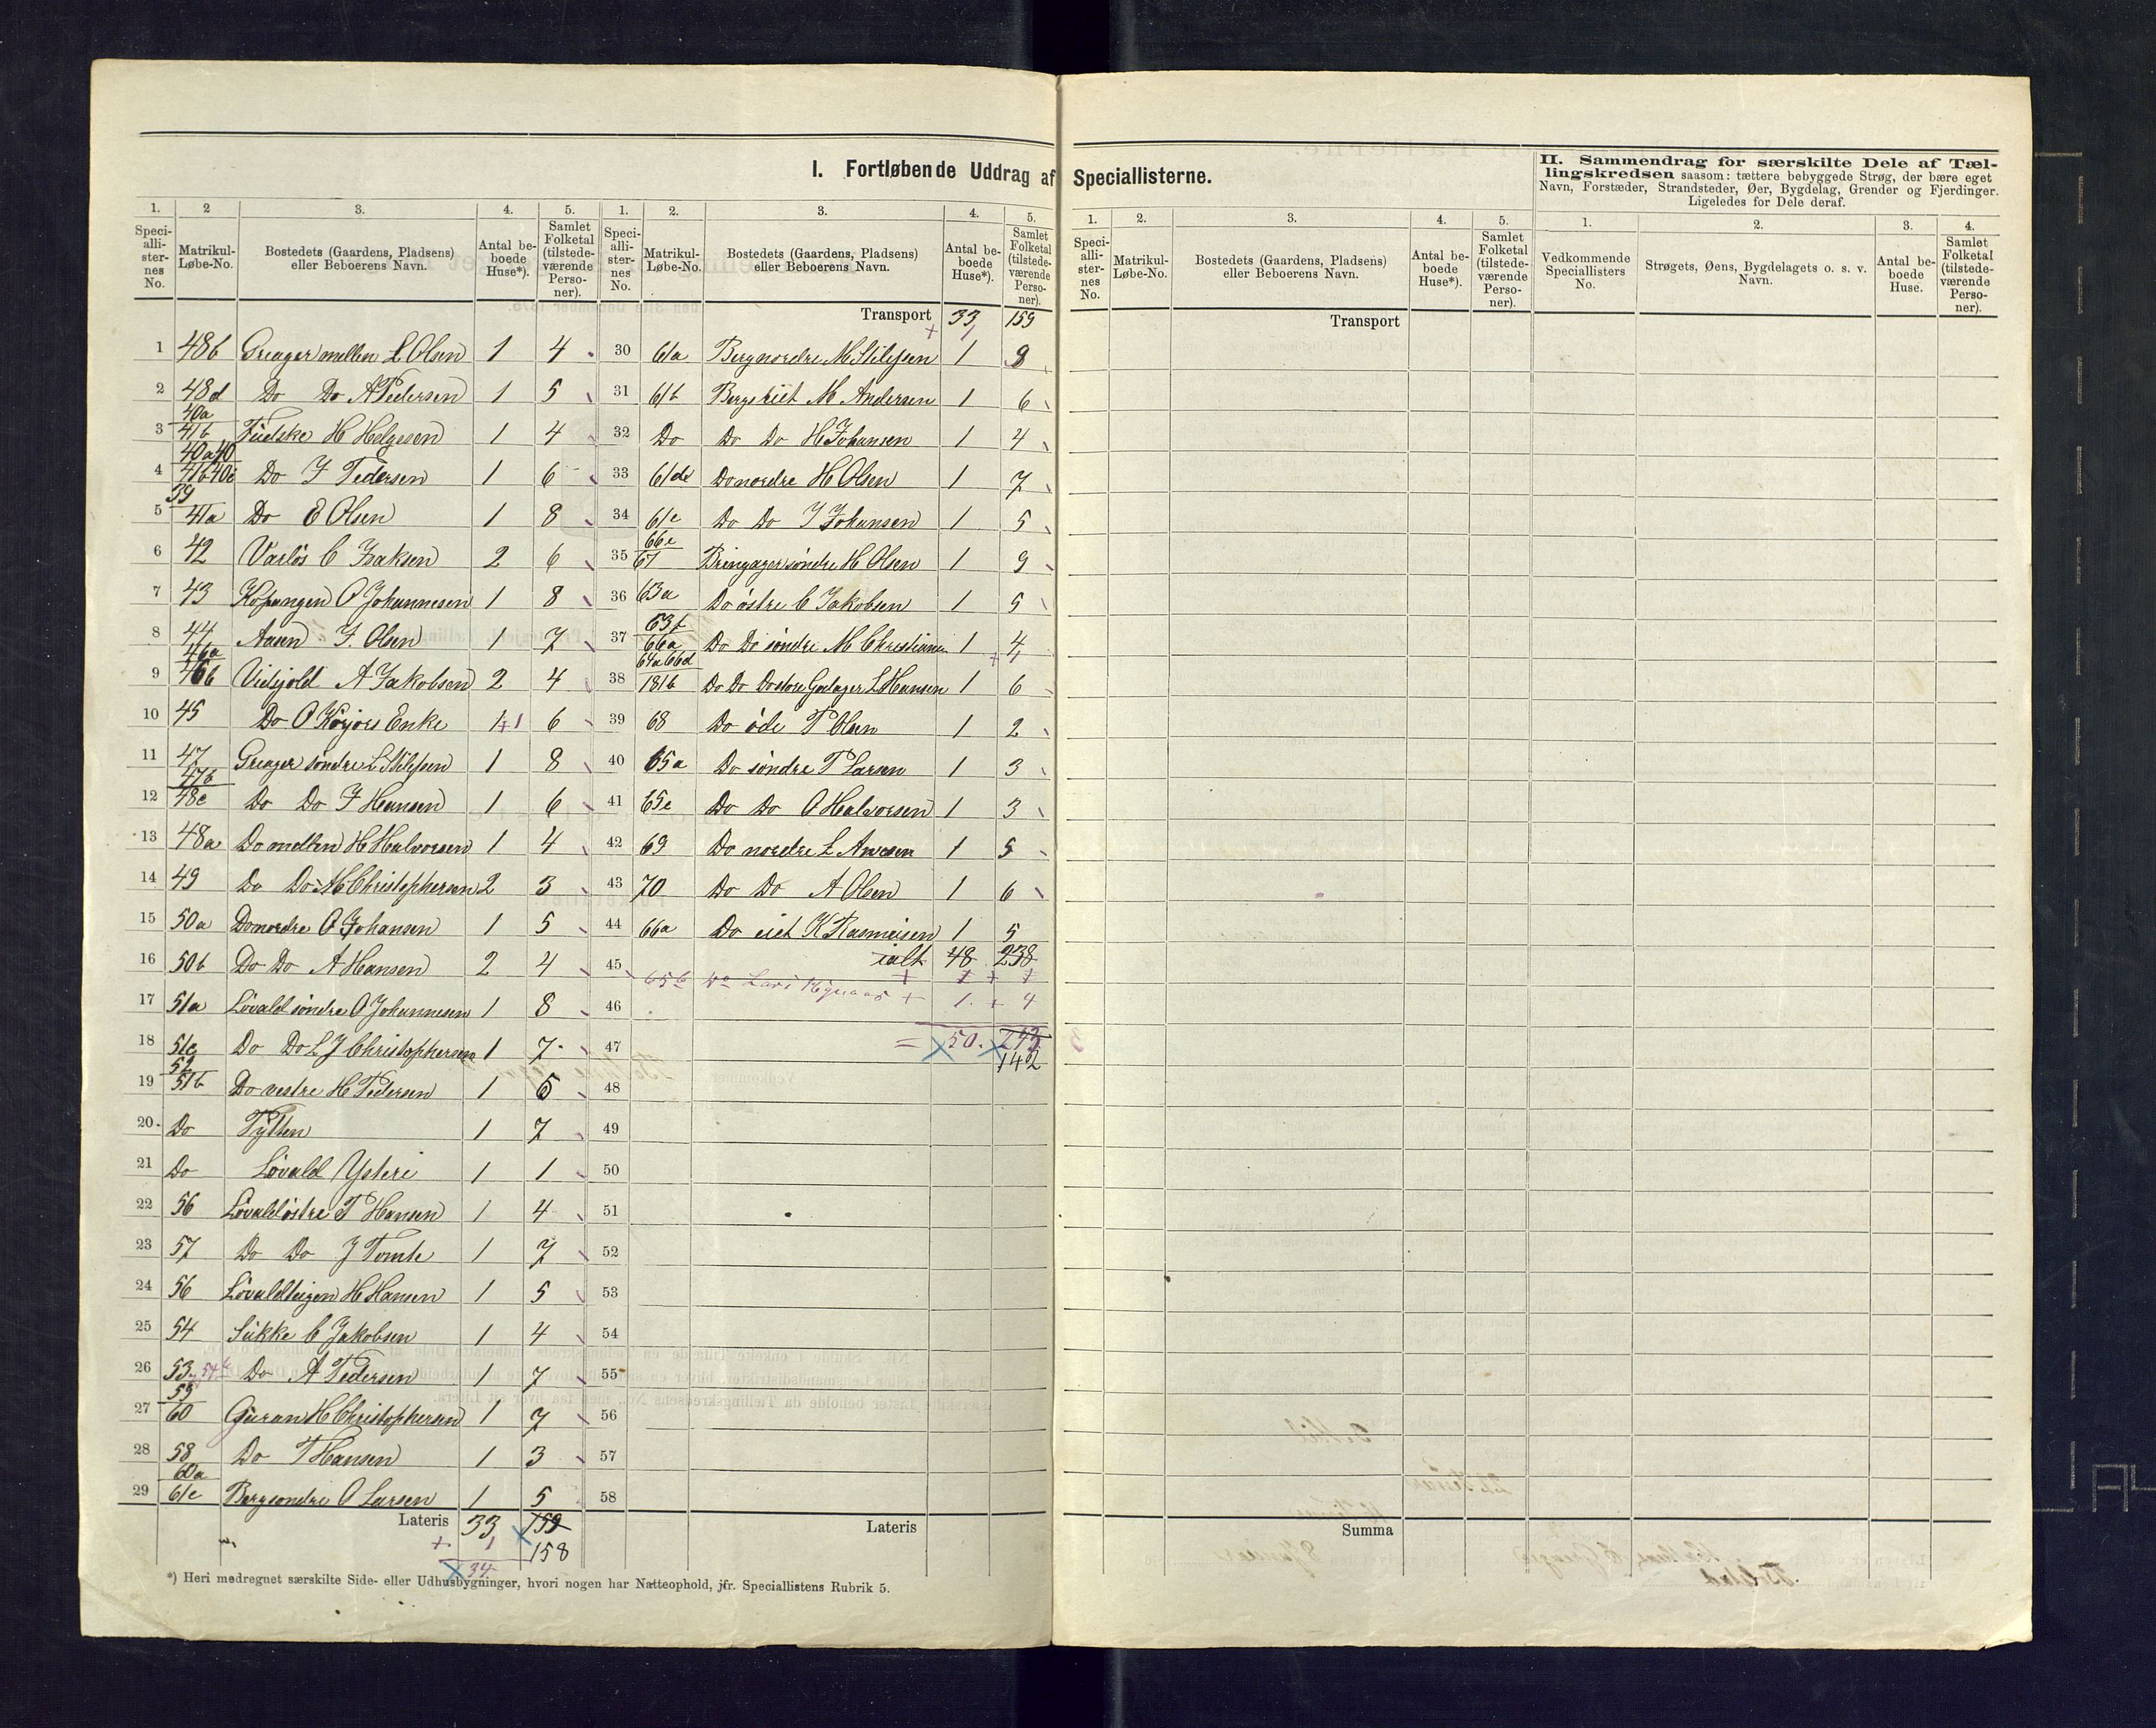 I. Fortløbende Uddrag af Speciallisterne.
II. Sammendrag for særskilte Dele af Tællingskredsen saasom: tættere bebyggede Strøg, der bære eget Navn, Forstæder, Strandsteder, Øer, Bygdelag, Grender og Fjerdinger. Ligeledes for Dele deraf.
1. 2 3. 4. 5.
Speciallisternes No. Matrikul-Løbe-No. Bostedets (Gaardens, Pladsens) eller Beboerens Navn. Antal beboede Huse*). Samlet Folketal (tilstedeværende Personer).
1 48b Greager mellem L Olsen 1 4
2 48d Do Do A Pedersen 1 5
3 40a 41b H Helgesen 1 4
4 Do J Pedersen 1 6
5 39 41a Do E Olsen 1 8
6 42 Varlös C Isaksen 2 6
7 43 Kopangen O Johannesen 1 8
8 44 Aasen J. Olsen 1 7
9 46a 46b A Jakobsen 2 4
10 45 Do O Enke 6
11 47 Greager söndre L 1 8
12 47b 48c Do Do J Hansen 1 6
13 48a Do mellem H Halvorsen 1 4
14 49 Do Do M Christophersen 2 3
15 50a Do nordre O Johansen 1 5
16 50b Do Do A Hansen 2 4
17 51a Lövald söndre O Johannesen 1 8
18 51c Do Do L J Christophersen 1 7
19 52 51b Do vestre H Pedersen 1 6
20 Do 1 7
21 Do Lövald Ysteri 1 1
22 56 Lövald östre P Hansen 1 4
23 57 Do Do J Tomte 1 7
24 56 Lövaldteigen H Hansen 1 5
25 54 Sukke C Jakobsen 1 4
26 53 54b Do A Pedersen 1 7
27 59 60 Guran H Christophersen 1 7
28 58 Do T Hansen 1 3
29 60a 61c Berg söndre O Larsen 1 5
Lateris 33 159
+ 1 158
34
*) Heri medregnet særskilte Side- eller Udhusbygninger, hvori nogen har Natteophold, jfr. Speciallistens Rubrik 5.
1. 2. 3. 4. 5.
Speciallisternes No. Matrikul-Løbe-No. Bostedets (Gaardens, Pladsens) eller Beboerens Navn. Antal beboede Huse*). Samlet Folketal (tilstedeværende Personer).
Transport 33 159
+ 1
30 61a Berg nordre M 1 8
31 61b Berg M Andersen 1 6
32 Do Do Do H Johansen 1 4
33 61d Do nordre H Olsen 1 7
34 61e Do Do J Johansen 1 5
35 66c 67 Bringager söndre H Olsen 1 9
36 63a Do östre C Jakobsen 1 5
37 63f 66a Do Do söndre M 1 4
38 64a 66d 181b Do Do Do store L Hansen 1 6
39 68 Do öde P Olsen 1 2
40 65a Do söndre P Larsen 1 3
41 65c Do Do O Halvorsen 1 3
42 69 Do nordre L 1 5
43 70 Do Do A Olsen 1 6
44 66a Do K Rasmusen 1 5
45 ialt 48 238
+ 1 + 1
65b + 1. + 4
46
47 = 50. 243
142
48
49
50
51
52
53
54
55
56
57
58
Lateris
1. 2. 3. 4. 5.
Speciallisternes No. Matrikul-Løbe-No. Bostedets (Gaardens, Pladsens) eller Beboerens Navn. Antal beboede Huse*). Samlet Folketal (tilstedeværende Personer).
Transport
Summa
1. 2. 3. 4.
Vedkommende Speciallisters No. Strøgets, Øens, Bygdelagets o. s. v. Navn. Antal beboede Huse. Samlet Folketal (tilstedeværende Personer).